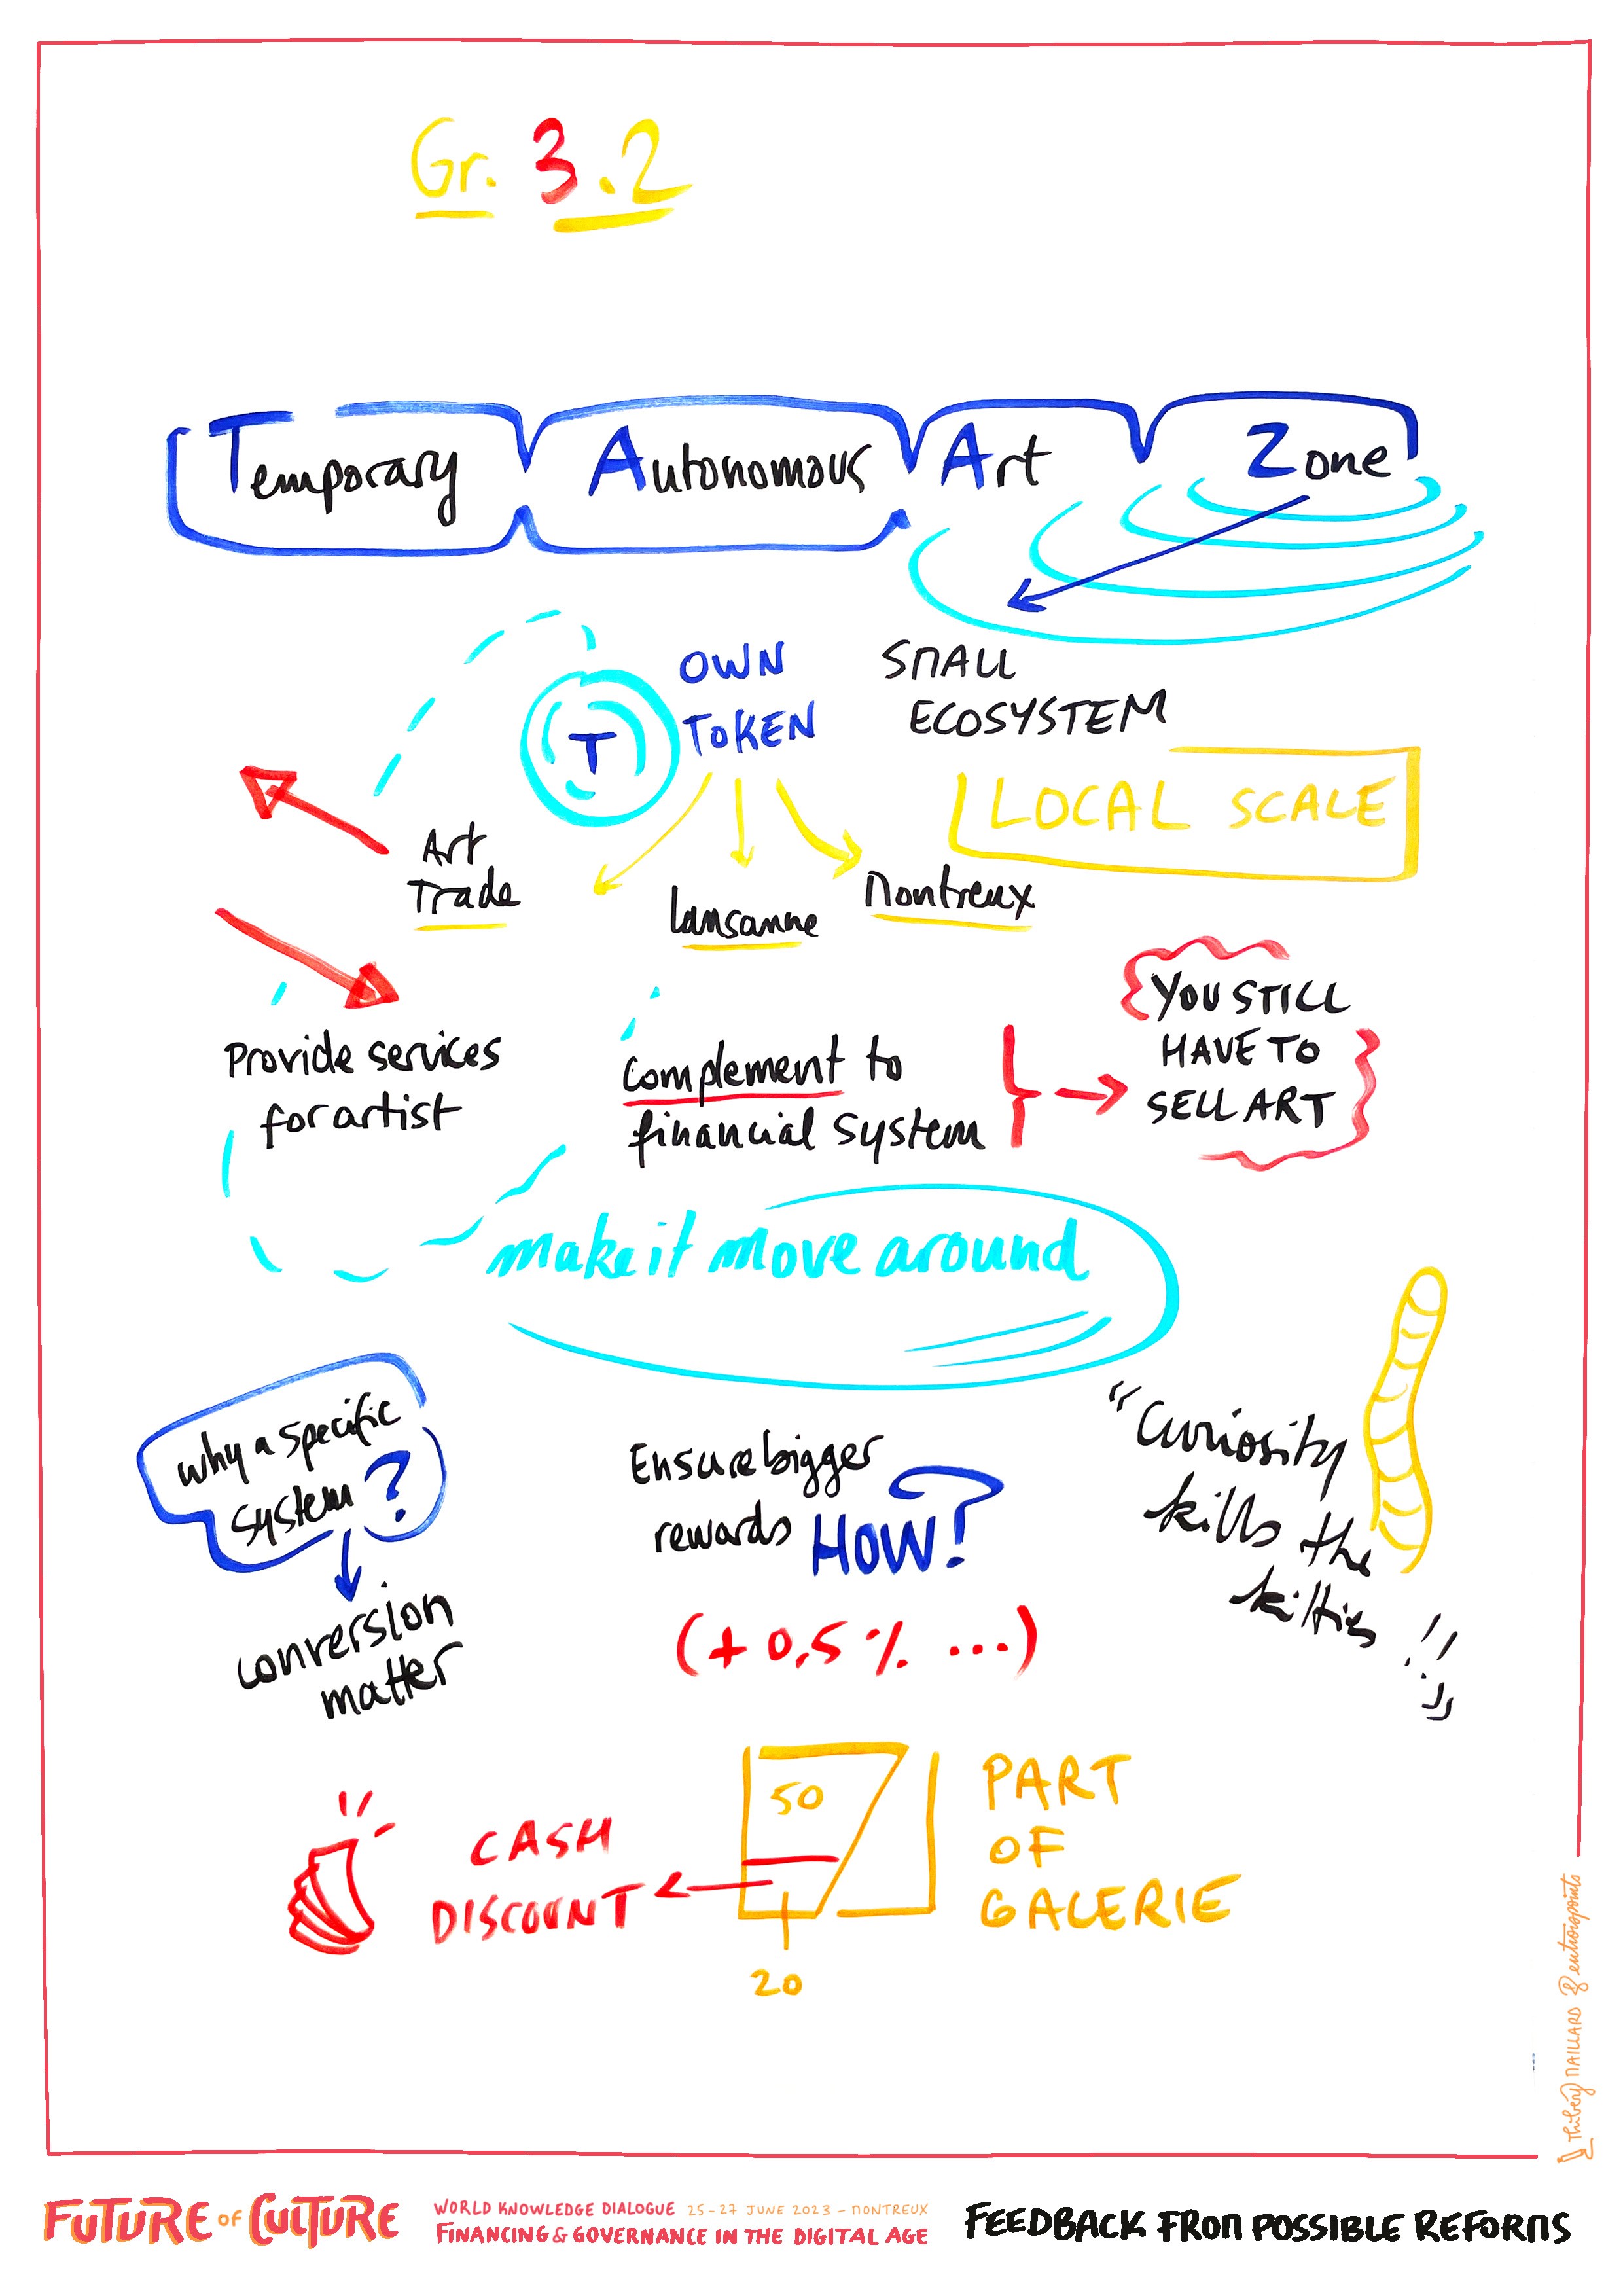 Gr. 3.2
Temporary Autonomous Art Zone
T
OWN
TOKEN
SMALL
ECOSYSTEM
LOCAL SCALE
Art
Trade
Lausanne
Montreux
Provide services
for artist
complement to
financial system
YOU STILL
HAVE TO
SELL ART
make it move around
why a specific
system?
conversion
matter
Ensure bigger
rewards HOW?
(+ 0,5 % ...)
"Curiosity
kills the
kitties !!"
CASH
DISCOUNT
50
20
PART
OF
GALERIE
Thibéry MAILLARD & entroropoints
FUTURE OF CULTURE
WORLD KNOWLEDGE DIALOGUE 25-27 JUNE 2023 - MONTREUX
FINANCING & GOVERNANCE IN THE DIGITAL AGE
FEEDBACK FROM POSSIBLE REFORMS